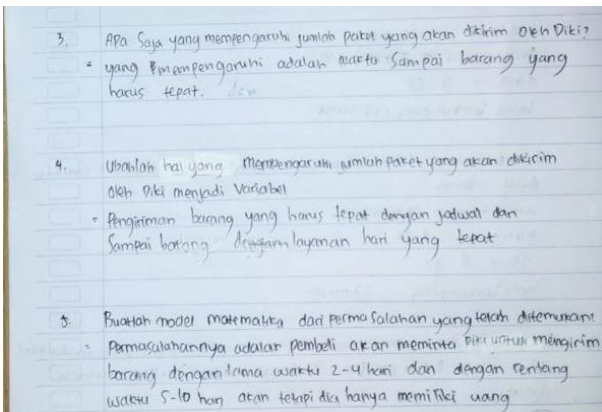 3. Apa saja yang mempengaruhi jumlah paket yang akan dikirim oleh Diki?
= yang mempengaruhi adalah waktu sampai barang yang
harus tepat.
4. Ubahlah hal yang mempengaruhi jumlah paket yang akan dikirim
oleh Diki menjadi variabel
= Pengiriman barang yang harus tepat dengan jadwal dan
Sampai barang dengan layanan hari yang tepat
5. Buatlah model matematika dari permasalahan yang telah ditemukan!
= Permasalahannya adalah pembeli akan meminta Diki untuk mengirim
barang dengan lama waktu 2-4 hari dan dengan rentang
waktu 5-10 hari akan tetapi dia hanya memiliki uang